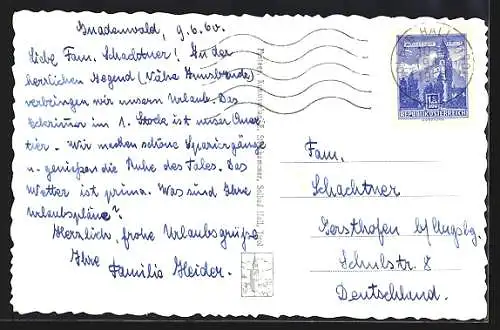 Gnadenwald, 9.6.60.
Liebe Fam. Schachtner! In der
herrlichen Gegend (Nähe Innsbrucks)
verbringen wir unsern Urlaub. Das
Eckzimmer im 1. Stock ist unser Quar-
tier. Wir machen schöne Spaziergänge
u. genießen die Ruhe des Tales. Das
Wetter ist prima. Was sind Ihre
Urlaubspläne?
Herzlich, frohe Urlaubsgrüße
Ihre
Familie Heider.
HALL
REPUBLIK ÖSTERREICH
Fam.
Schachtner
Gersthofen b/Augsbg.
Schulstr. 8
Deutschland.